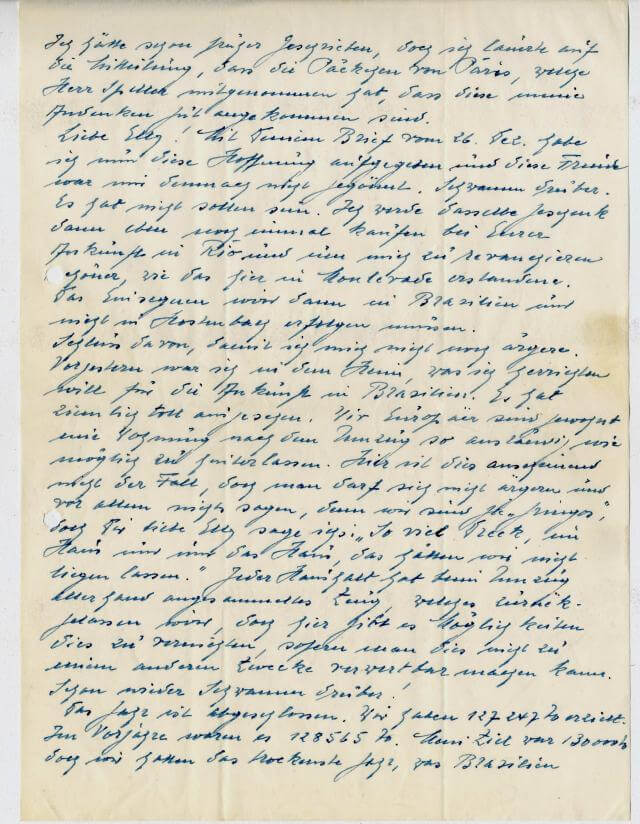 Ich hätte schon früher geschrieben, doch ich lauerte auf
die Mitteilung, dass die Päckchen von Paris, welche
Herr mitgenommen hat, dass diese meine
Andenken gut angekommen sind.
Liebe Elly! Mit Deinem Brief vom 26. Dez. habe
ich nun diese Hoffnung aufgegeben und diese Freude
war mir demnach nicht gegönnt. Schwamm drüber.
Es hat nicht sollen sein. Ich werde dasselbe Geschenk
dann eben noch einmal kaufen bei Eurer
Ankunft in Rio und um mich zu revangieren
schöner, wie das hier in Monlevade erstandene.
Das Einsegnen wird dann in Brasilien und
nicht in Hostenbach erfolgen müssen.
Schluss davon, damit ich mich nicht noch ärgere.
Vorgestern war ich in dem Heim, was ich herrichten
will für die Ankunft in Brasilien. Es hat
ziemlich toll ausgesehen. Wir Europäer sind gewohnt
eine Wohnung nach dem Umzug so anständig wie
möglich zu hinterlassen. Hier ist dies anscheinend
nicht der Fall, doch man darf sich nicht ärgern und
vor allem nichts sagen, denn wir sind ja „Gringos“,
doch Dir liebe Elly sage ich: „So viel Dreck, im
Haus und um das Haus, das hätten wir nicht
liegen lassen.“ Jeder Haushalt hat beim Umzug
allerhand angesammeltes Zeug welches zurück-
gelassen wird, doch hier gibt es Möglichkeiten
dies zu vernichten, sofern man dies nicht zu
einem anderen Zwecke verwertbar machen kann.
Schon wieder Schwamm drüber!
Das Jahr ist abgeschlossen. Wir haben 127 247 to erzielt.
Im Vorjahre waren es 128565 to. Mein Ziel war 130000 to
doch wir hatten das trockenste Jahr, was Brasilien